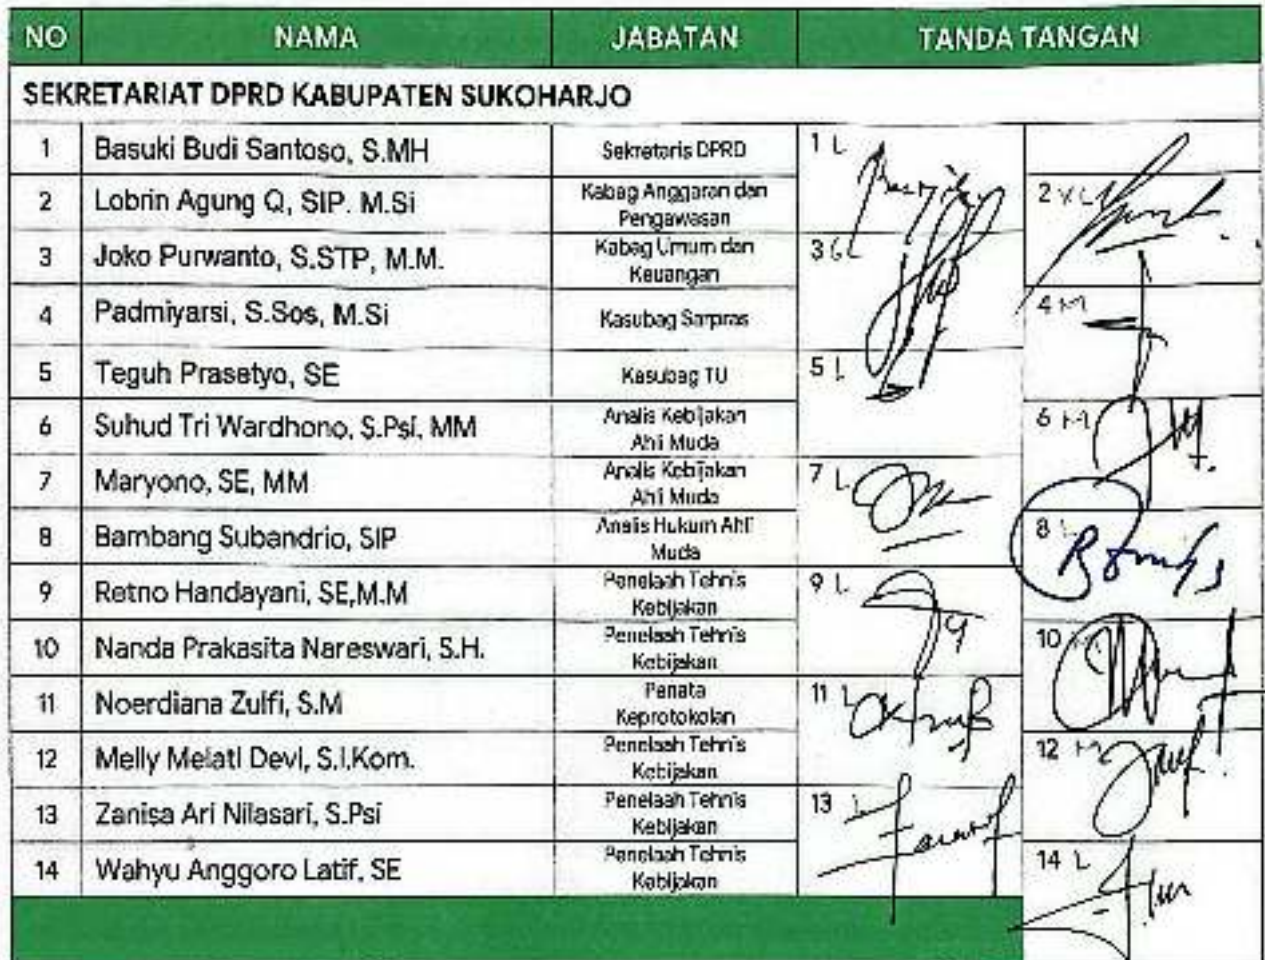 NO NAMA JABATAN TANDA TANGAN
SEKRETARIAT DPRD KABUPATEN SUKOHARJO
1 Basuki Budi Santoso, S.MH Sekretaris DPRD 1 L
2 Lobrin Agung Q, SIP. M.Si Kabag Anggaran dan Pengawasan 2 XL
3 Joko Purwanto, S.STP, M.M. Kabag Umum dan Keuangan 3
4 Padmiyarsi, S.Sos, M.Si Kasubag Sarpras 4 M
5 Teguh Prasetyo, SE Kasubag TU 5 L
6 Suhud Tri Wardhono, S.Psi, MM Analis Kebijakan Ahli Muda 6 M
7 Maryono, SE, MM Analis Kebijakan Ahli Muda 7 L
8 Bambang Subandrio, SIP Analis Hukum Ahli Muda 8 L
9 Retno Handayani, SE,M.M Penelaah Tehnis Kebijakan 9 L
10 Nanda Prakasita Nareswari, S.H. Penelaah Tehnis Kebijakan 10
11 Noerdiana Zulfi, S.M Penata Keprotokolan 11 L
12 Melly Melati Devi, S.I.Kom. Penelaah Tehnis Kebijakan 12 M
13 Zanisa Ari Nilasari, S.Psi Penelaah Tehnis Kebijakan 13 L
14 Wahyu Anggoro Latif, SE Penelaah Tehnis Kebijakan 14 L